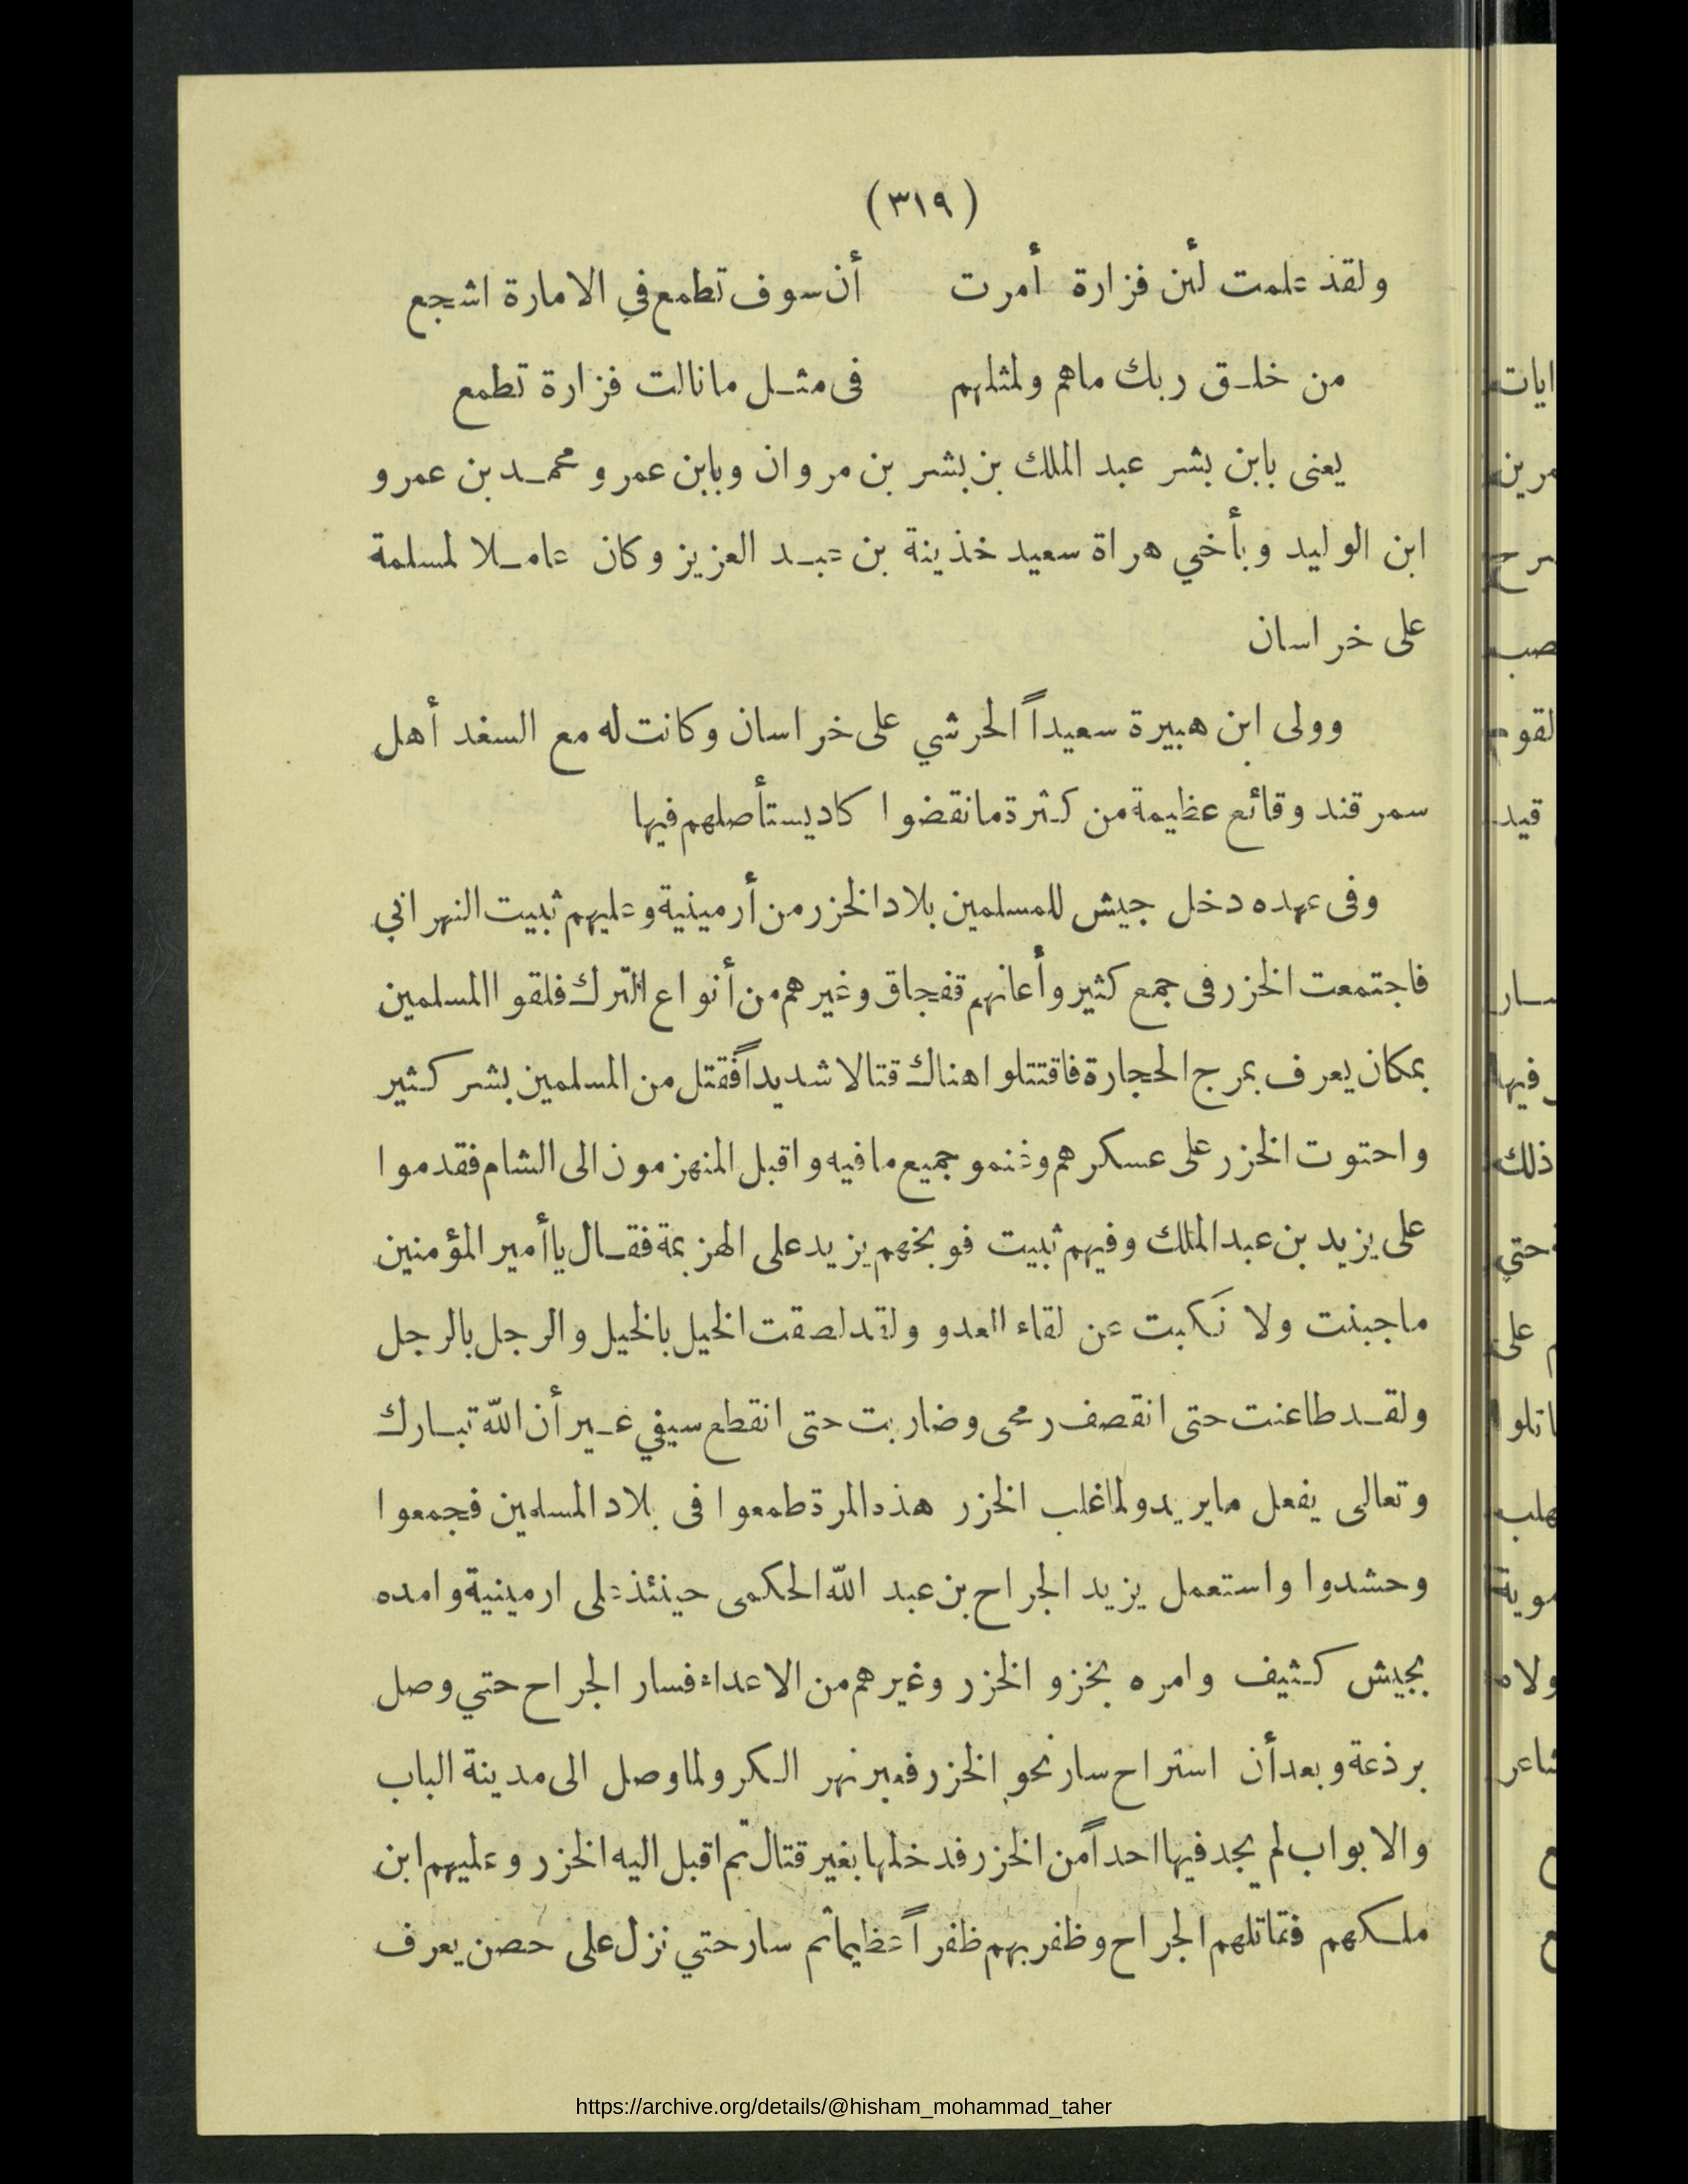 (٣١٩)
ولقد علمت لئن فزارة أمرت أن سوف تطمع في الامارة اشجع
من خلق ربك ماهم ولمثلهم فى مثل مانالت فزارة تطمع
يعنى بابن بشر عبد الملك بن بشر بن مروان وبابن عمرو محمد بن عمرو
ابن الوليد وبأخي هراة سعيد خذينة بن عبد العزيز وكان عاملا لمسلمة
على خراسان
وولى ابن هبيرة سعيداً الحرشي على خراسان وكانت له مع السغد أهل
سمرقند وقائع عظيمة من كثرة مانقضوا كاد يستأصلهم فيها
وفى عهده دخل جيش للمسلمين بلاد الخزر من أرمينية وعليهم ثبيت النهراني
فاجتمعت الخزر فى جمع كثير وأعانهم قفجاق وغيرهم من أنواع الترك فلقوا المسلمين
بمكان يعرف بمرج الحجارة فاقتتلوا هناك قتالا شديداً فقتل من المسلمين بشر كثير
واحتوت الخزر على عسكرهم وغنمو جميع مافيه واقبل المنهزمون الى الشام فقدموا
على يزيد بن عبد الملك وفيهم ثبيت فوبخهم يزيد على الهزيمة فقال ياأمير المؤمنين
ماجبنت ولا نَكبت عن لقاء العدو ولقد لصقت الخيل بالخيل والرجل بالرجل
ولقد طاعنت حتى انقصف رمحى وضاربت حتى انقطع سيفي غير أن الله تبارك
وتعالى يفعل مايريد ولما غلب الخزر هذه المرة طمعوا فى بلاد المسلمين فجمعوا
وحشدوا واستعمل يزيد الجراح بن عبد الله الحكمى حينئذ على ارمينية وامده
بجيش كثيف وامره بخزو الخزر وغيرهم من الاعداء فسار الجراح حتي وصل
برذعة وبعد أن استراح سار نحو الخزر فعبر نهر الكر ولما وصل الى مدينة الباب
والابواب لم يجد فيها احداً من الخزر فدخلها بغير قتال ثم اقبل اليه الخزر وعليهم ابن
ملكهم فقاتلهم الجراح وظفر بهم ظفراً عظيما ثم سار حتي نزل على حصن يعرف
https://archive.org/details/@hisham_mohammad_taher